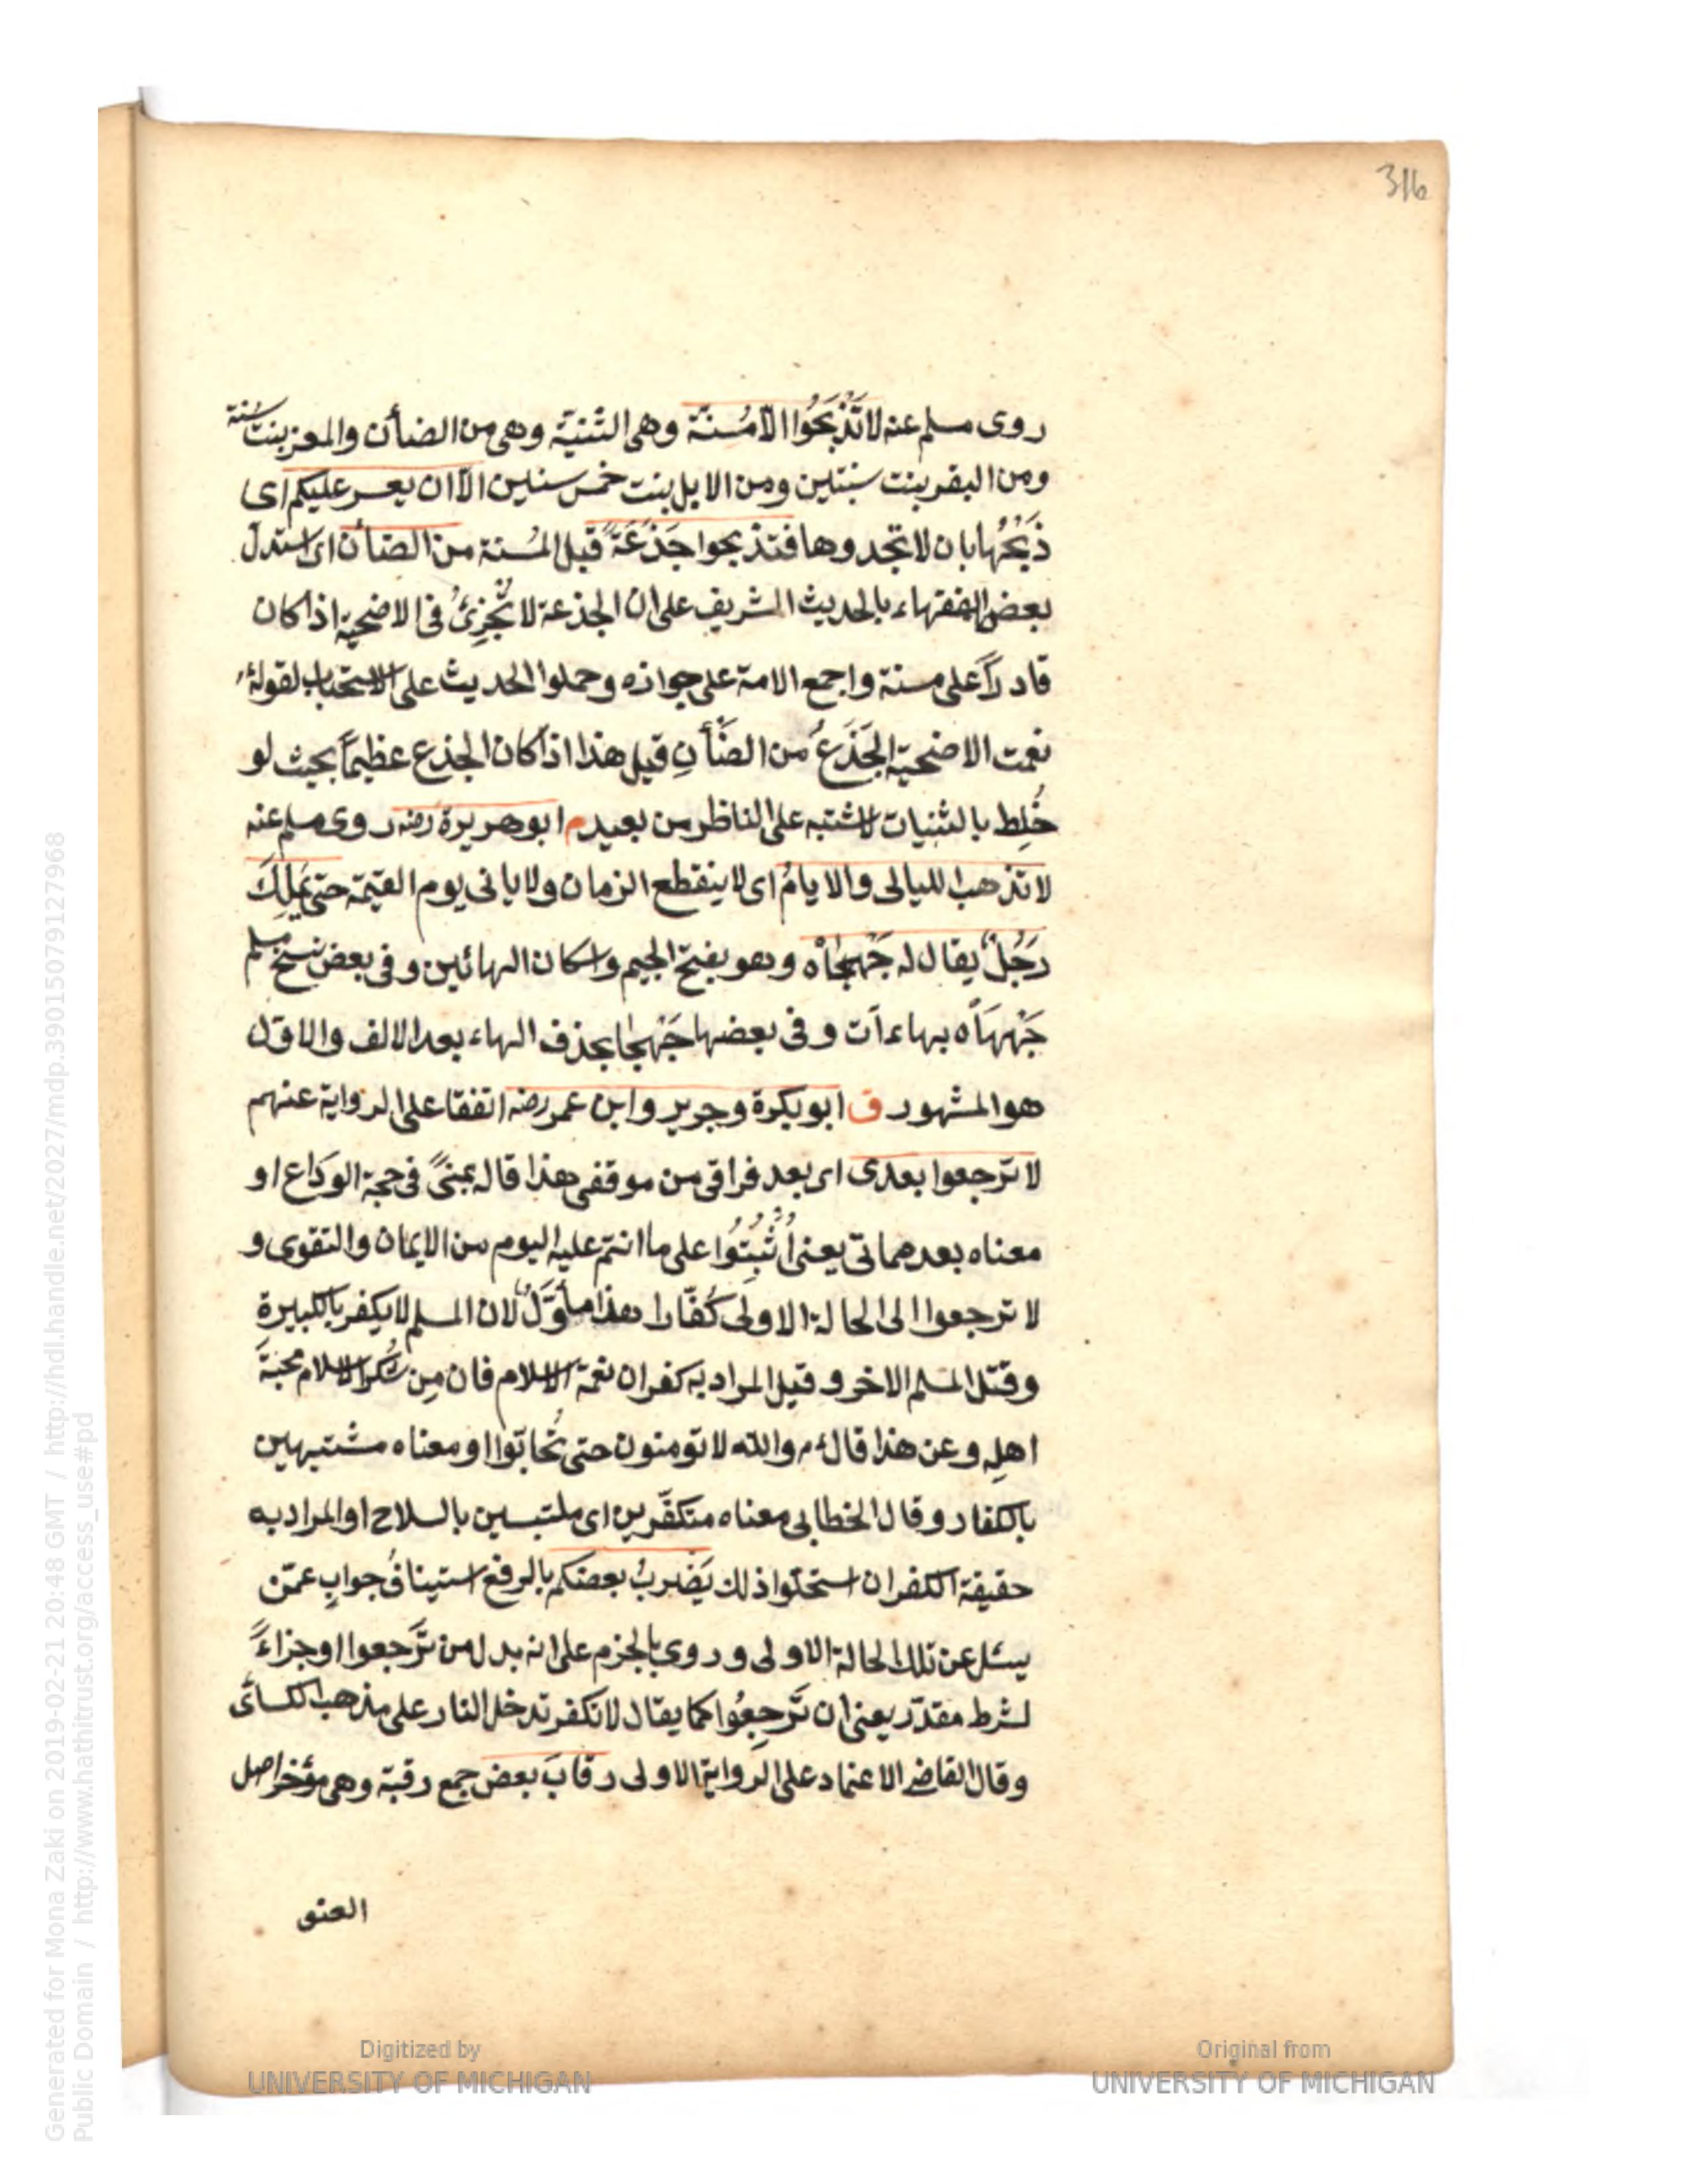 316
روى مسلم عنه لا تَذْبَحُوا الّا مُسِنَّة وهى الثنيّة وهى من الضأن والمعز بنت سنة
ومن البقر بنت سنتين ومن الابل بنت خمس سنين الّا ان يعسر عليكم اى
ذَبْحُها بان لا تجدوها فتذبحوا جَذَعَةً قبل المُسنة من الضأن اى استدلّ
بعض الفقهاء بالحديث الشريف على ان الجذعة لا تُجْزِئُ فى الاضحية اذا كان
قادراً على مسنة واجمع الامة على جوازه وحملوا الحديث على الاستحباب لقولهء م
نعمت الاضحية الجَذَعُ من الضَّأنِ قيل هذا اذا كان الجذع عظيماً بحيث لو
خُلِط بالثنيات لاشتبه على الناظر من بعيد م ابو هريرة رضه روى مسلم عنه
لا تذهب الليالى والايامُ اى لا ينقطع الزمان ولا ياتى يوم القيمة حتى يَمْلِكَ
رَجُلٌ يقال له جَهْجَاْه وهو بفتح الجيم واسكان الهائين وفى بعض نسخ مسلم
جَهْهَاْه بهاءات وفى بعضها جَهْجَا بحذف الهاء بعد الالف والاوّل
هو المشهور ق ابو بكرة وجرير وابن عمر رضه اتفقا على الرواية عنهم
لا ترجعوا بعدى اى بعد فراقى من موقفى هذا قاله بمنىً فى حجة الوَدَاع او
معناه بعد مماتى يعنى اُثْبُتُوا على ما انتم عليه اليوم من الايمان والتقوى و
لا ترجعوا الى الحالة الاولى كُفّارا هذا مأوَّلٌ لان المسلم لا يكفر بالكبيرة
وقتل المسلم الاخر وقيل المراد به كفران نعمة الاسلام فان مِن شكر الاسلام محبةَ
اهلِه وعن هذا قالء م والله لا تومنون حتى تُحابّوا او معناه مشتبهين
بالكفار وقال الخطابى معناه متكفّرين اى ملتبسين بالسلاح او المراد به
حقيقة الكفر ان استحلّوا ذلك يَضْرِبُ بعضكم بالرفع استينافُ جوابٍ عمّن
يسئل عن تلك الحالة الاولى وروى بالجزم على انه بدل من تَرجعوا او جزاءً
لشرط مقدّر يعنى ان تَرجِعُوا كما يقال لا تكفر تدخل النار على مذهب الكسائى
وقال القاضى الاعتماد على الرواية الاولى رقابَ بعض جمع رقبة وهى مؤخر اصل
العنق
Digitized by
UNIVERSITY OF MICHIGAN
Original from
UNIVERSITY OF MICHIGAN
Generated for Mona Zaki on 2019-02-21 20:48 GMT / http://hdl.handle.net/2027/mdp.39015079127968
Public Domain / http://www.hathitrust.org/access_use#pd